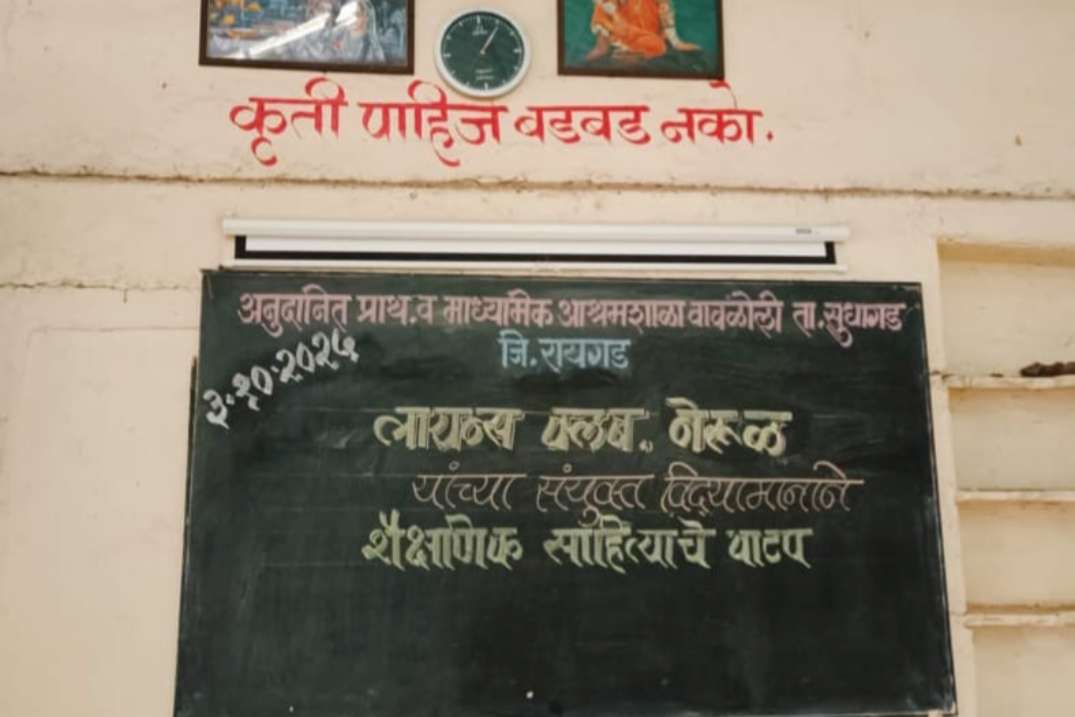 कृती पाहिजे बडबड नको.
अनुदानित प्राथ. व माध्यमिक आश्रमशाळा वावळोली ता. सुधागड
जि. रायगड
३.१०.२०२५
लायन्स क्लब. नेरूळ
यांच्या संयुक्त विद्यामानाने
शैक्षणिक साहित्याचे वाटप